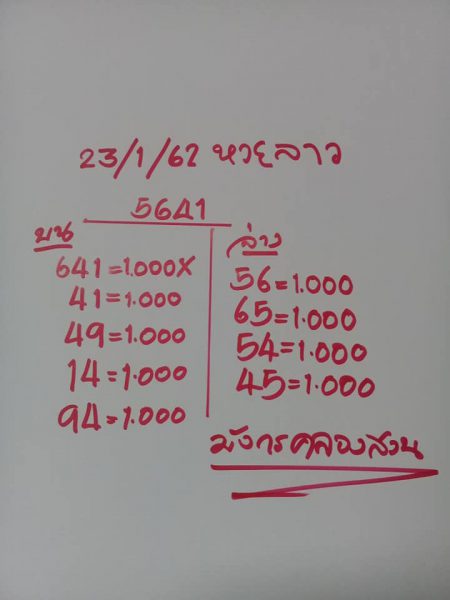 23/1/62 หวยลาว
5641
บน
641=1.000X
41=1.000
49=1.000
14=1.000
94=1.000
ล่าง
56=1.000
65=1.000
54=1.000
45=1.000
มังกรคลองสวน